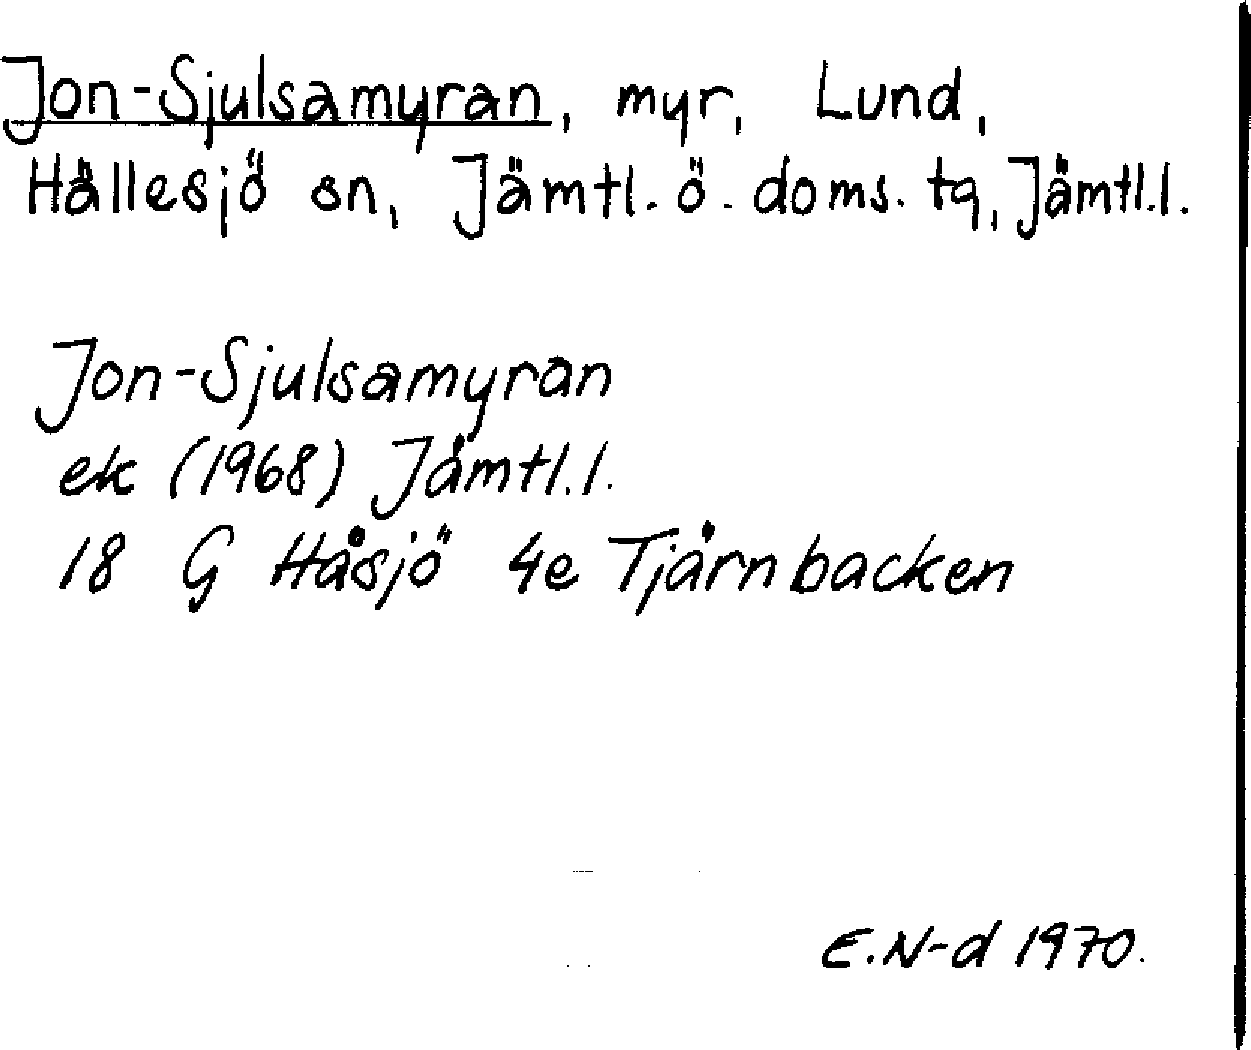 Jon-Sjulsamyran, myr, Lund,
Hällesjö sn, Jämtl. ö. doms. tg, Jämtl.l.
Jon-Sjulsamyran
ek (1968) Jämtl.l.
18 G Håsjö 4e Tjärnbacken
E.N-d 1970.